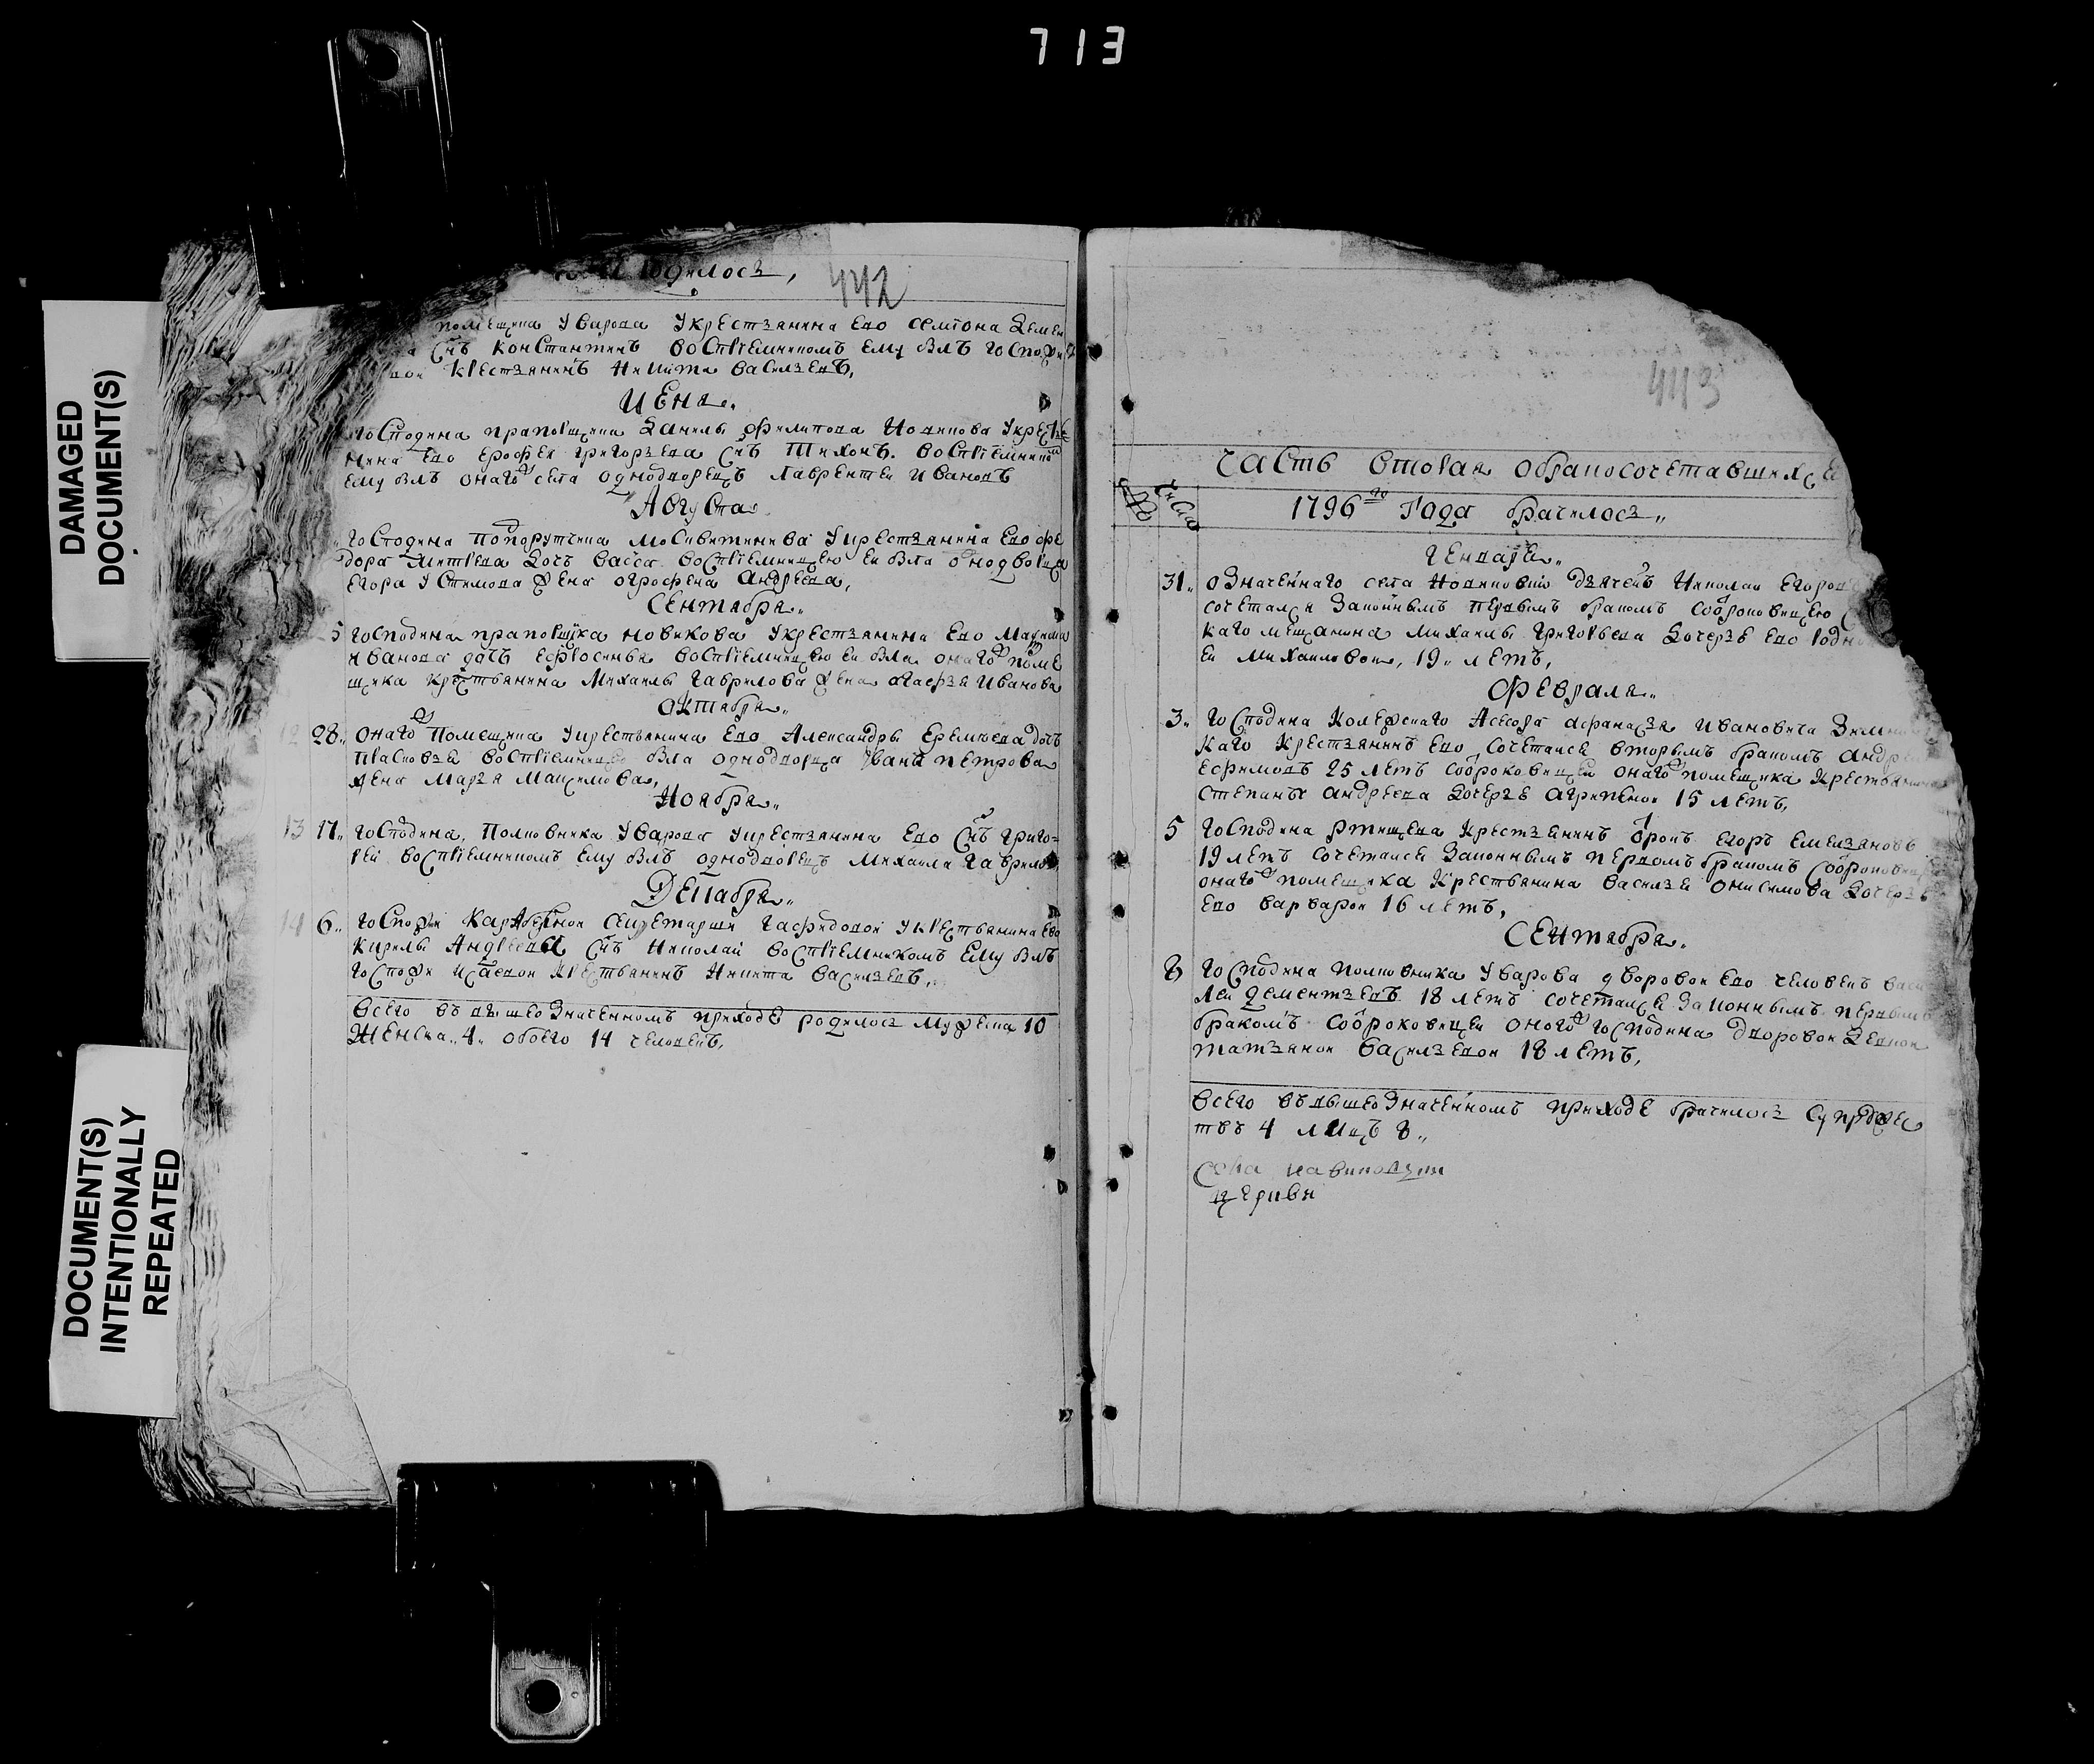 713
DAMAGED
DOCUMENT(S)
DOCUMENT(S)
INTENTIONALLY
REPEATED
родилось,
442
помещика Уварова Укрестьянина Ево семіона
Снъ Константинъ воспріемникомъ ему былъ госпожи
Крестьянинъ Никита васильевъ,
Июня.
господина прапорщика Данилы филипова Новикова Укрестья
нина Ево ерофея григорьева снъ Тихонъ. воспріемником
ему былъ онаго села однодворецъ Лаврентеи Ивановъ
Августа
господина Подпорутчика Укрестьянина Ево фе
дора Митрева дочь васса воспріемницею ей была однодворца
Егора Устимова жена огрофена андреева,
Сентября.
5 господина прапорщика новикова Укрестьянина Ево Максима
иванова дочь ефросинья воспріемницею ей была онаго поме
щика крестьянина Михаилы гаврилова жена агафья Иванова
октября.
12 28. онаго Помещика Укрестьянина Ево Александры Еремеева дочь
Прасковья воспріемницею была однодворца Ивана петрова
жена Марья Максимова,
Ноября.
13 17. господина, Полковника Уварова Укрестьянина Ево Снъ григо=
рей воспріемникомъ ему былъ однодворецъ Михаила гавриловъ
Декабря.
14 6. госпожи секретарши Укрестьянина Ево
кирилы Андреева снъ Николай воспріемникомъ Ему былъ
госпожи крестьянинъ Никита васильевъ,
всего въ вышеозначенномъ приходе родилось мужеска 10
женска 4. обоего 14 человекъ.
443
часть вторая обракосочетавшихся
число
1796го года брачилось,,
генваря.
31. означеннаго села Новиковки дьячекъ Николай Егоров
сочетался законнымъ первымъ бракомъ собрачовицею
каго мещанина Михаилы григорьева дочерью Ево родно
ей Михаиловои, 19 летъ,
февраля.
3. господина Колежскаго Асесора афанасья ивановича
каго крестьянинъ Ево сочетался вторымъ бракомъ андр
ефимовъ 25 летъ онаго помещика крестьянина
степана андреева дочерью агрипеной 15 летъ,
5 господина ртищева крестьянинъ Егоръ Емельяновъ
19 летъ сочетался законнымъ первомъ бракомъ
онаго помещика крестьянина василья онисимова дочерью
Ево варварои 16 летъ,
Сентября.
8 господина полковника Уварова дворовои Ево человекъ васи
леи дементьевъ 18 летъ сочетался законнымъ первымъ
бракомъ оного господина дворовои девкои
татьянои васильевои 18 летъ,
всего въ вышеозначенномъ приходе брачилось супружес
твъ 4 лицъ 8.
Села
церкви